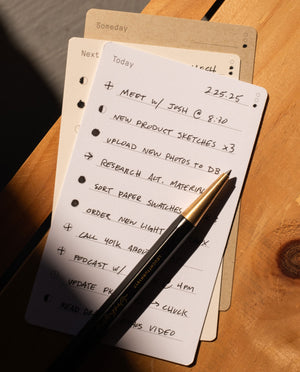 Someday
Next
Today
2.25.25
+ MEET W/ JOSH @ 8:30
NEW PRODUCT SKETCHES x3
UPLOAD NEW PHOTOS TO DB
→ RESEARCH ALT. MATERIAL
SORT PAPER SWATCHES
ORDER NEW LIGHT
+ CALL YOLK ABOUT
+ PODCAST W/ 4PM
UPDATE CHUCK
READ VIDEO